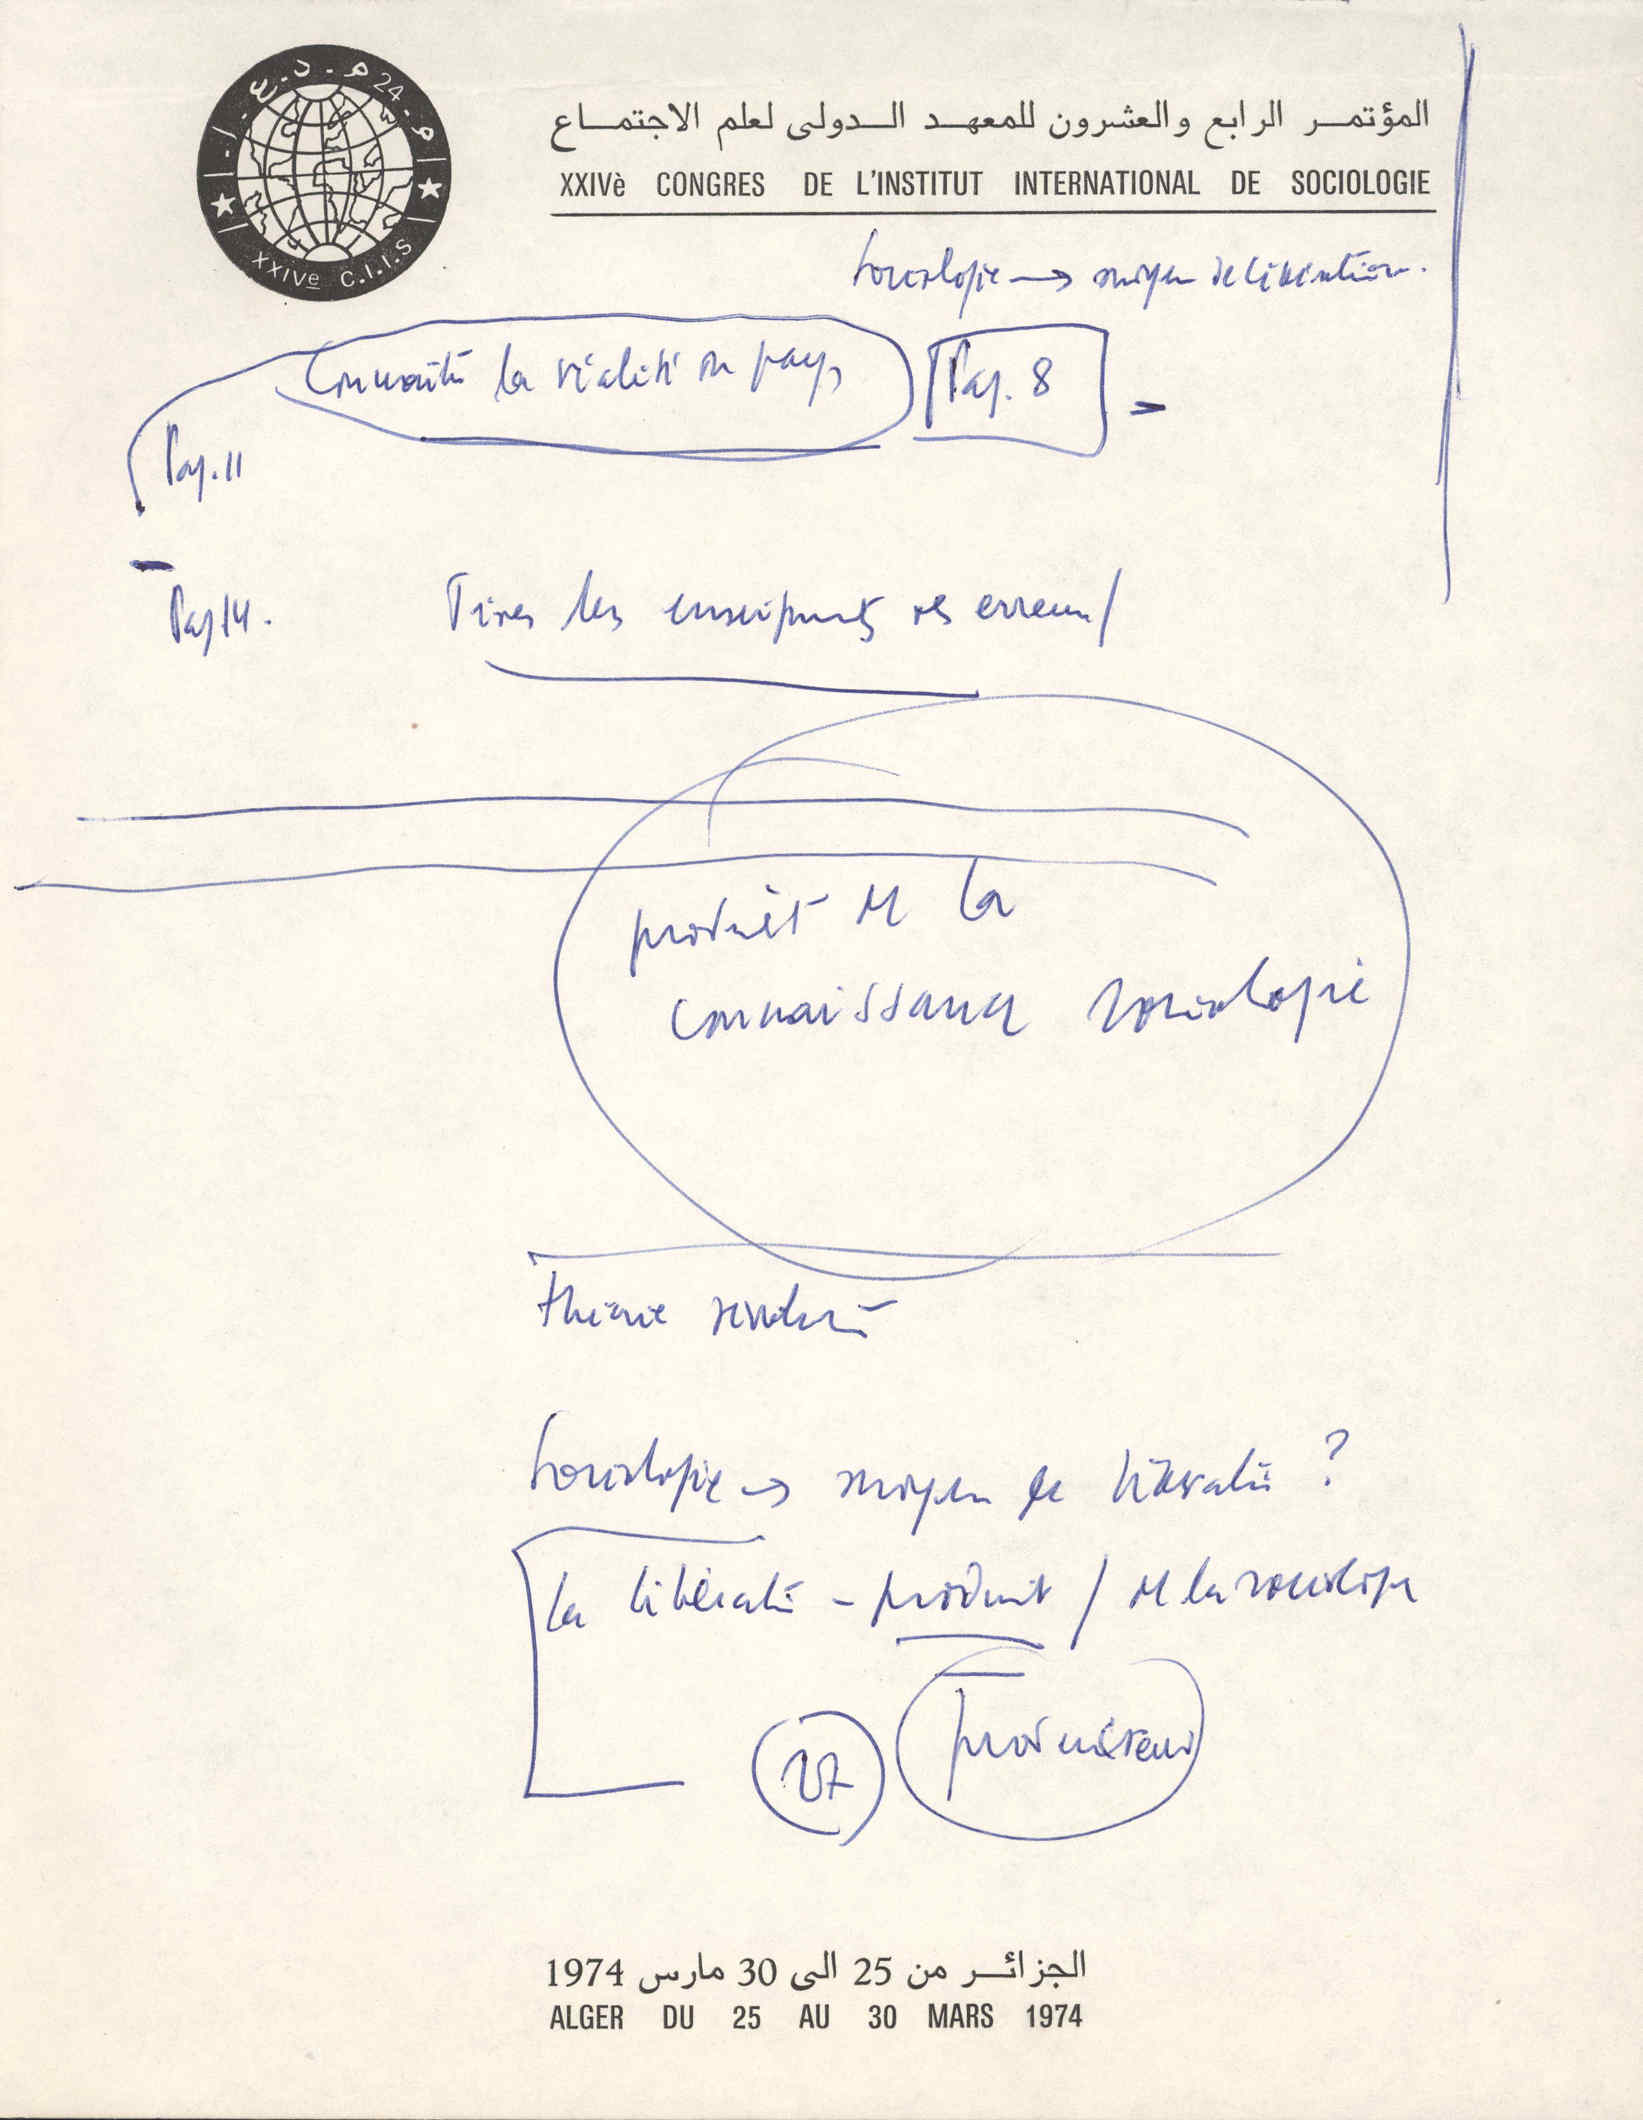 م.د.ع.ا.ا 24.م
XXIVe C.I.I.S
المؤتمر الرابع والعشرون للمعهد الدولى لعلم الاجتماع
XXIVè CONGRES DE L'INSTITUT INTERNATIONAL DE SOCIOLOGIE
Sociologie → moyen de libération.
Connaître la réalité du pays
Pag. 8
Pag. 11
Pag 14.
Tirer les des erreurs/
produit de la
connaissance sociologie
théorie
Sociologie → moyen de libération ?
la libération - produit / de la sociologie
27
producteur
الجزائر من 25 الى 30 مارس 1974
ALGER DU 25 AU 30 MARS 1974